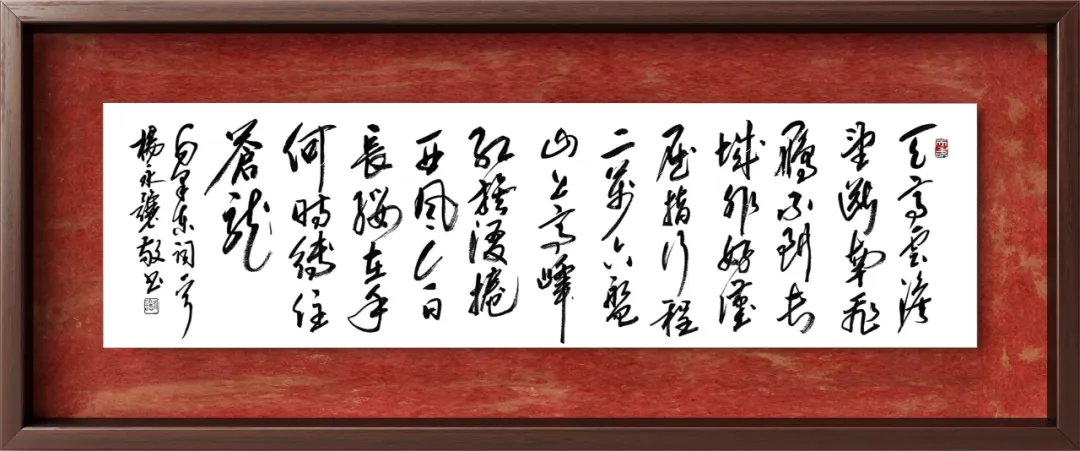 天高雲淡
望斷南飛
雁不到長
城非好漢
屈指行程
二萬六盤
山上高峰
紅旗漫捲
西風今日
長纓在手
何時縛住
蒼龍
毛澤東詞一首
楊永 敬書